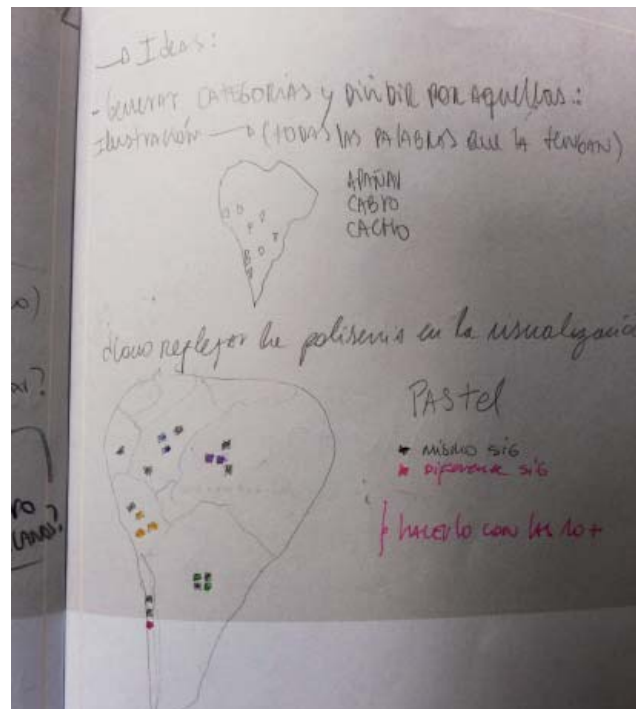 → Ideas:
- Generar CATEGORÍAS y DIVIDIR POR AQUELLAS:
Ilustración → (TODAS LAS PALABRAS QUE LA TENGAN)
APAÑAR
CABRO
CACHO
Cómo reflejar la polisemia en la visualización
PASTEL
MISMO SIG
DIFERENTE SIG
HACERLO CON LAS 10+